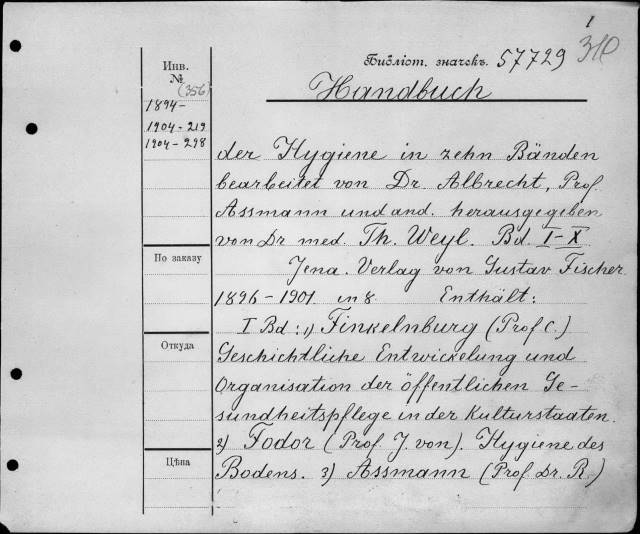 1
Библіот. значекъ. 57729 310
Инв.
№
(356)
1894-
1904-219
1904-298
Handbuch
der Hygiene in zehn Bänden
bearbeitet von Dr Albrecht, Prof.
Assmann und and. herausgegeben
von Dr med. Th. Weyl. Bd. I-X
По заказу
Jena. Verlag von Gustav Fischer
1896-1901 in 8. Enthält:
I Bd: 1) Finkelnburg (Prof C.)
Откуда
Geschichtliche Entwickelung und
Organisation der öffentlichen Ge-
sundheitspflege in der Kulturstaaten.
2) Fodor (Prof. J. von). Hygiene des
Цѣна
Bodens. 3) Assmann (Prof. Dr. R.)